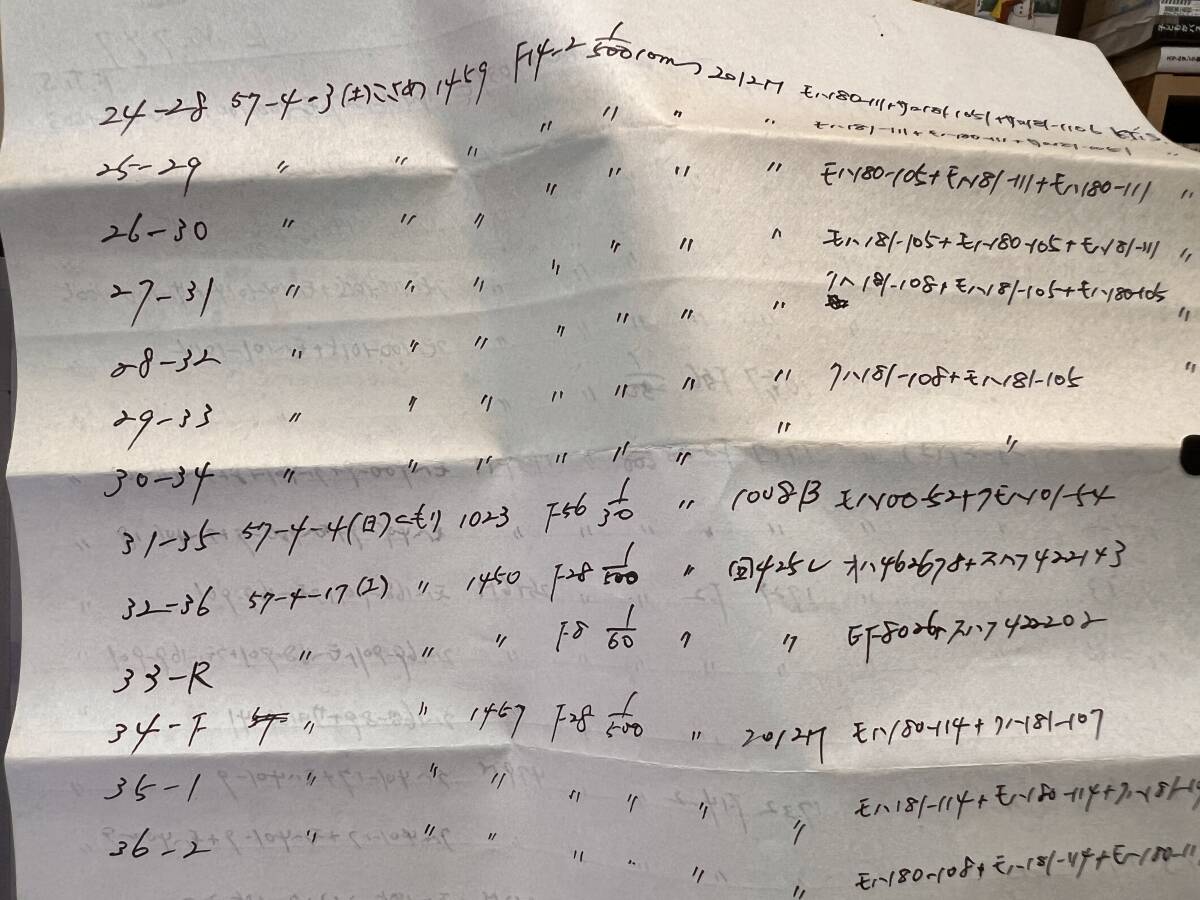 24-28 57-4-3(土)こさめ 1459 F14-2 1/500 10m 2012M モハ180-111+サロ181-1051+サロ181-1106
モハ181-111+モハ180-111+サロ181-1051 〃
25-29 〃 〃 〃 〃 〃 〃 〃 モハ180-105+モハ181-111+モハ180-111 〃
26-30 〃 〃 〃 〃 〃 〃 〃 モハ181-105+モハ180-105+モハ181-111 〃
27-31 〃 〃 〃 〃 〃 〃 〃 クハ181-108+モハ181-105+モハ180-105 〃
28-32 〃 〃 〃 〃 〃 〃 〃 クハ181-108+モハ181-105 〃
29-33 〃 〃 〃 〃 〃 〃 〃 〃
30-34 〃 〃 〃 〃 〃 〃
31-35 57-4-4(日)くもり 1023 F56 1/30 〃 1008B モハ100-52+クモハ101-54
32-36 57-4-17(土) 〃 1450 F28 1/500 〃 回425レ オハ462678+スハフ422143
33-R 〃 〃 〃 F8 1/60 〃 〃 EF8026+スハフ422202
34-F 〃 〃 1457 F28 1/500 〃 2012M モハ180-114+クハ181-107
35-1 〃 〃 〃 〃 〃 〃 〃 モハ181-114+モハ180-114+クハ181-1
36-2 〃 〃 〃 〃 〃 〃 〃 モハ180-108+モハ181-114+モハ180-11